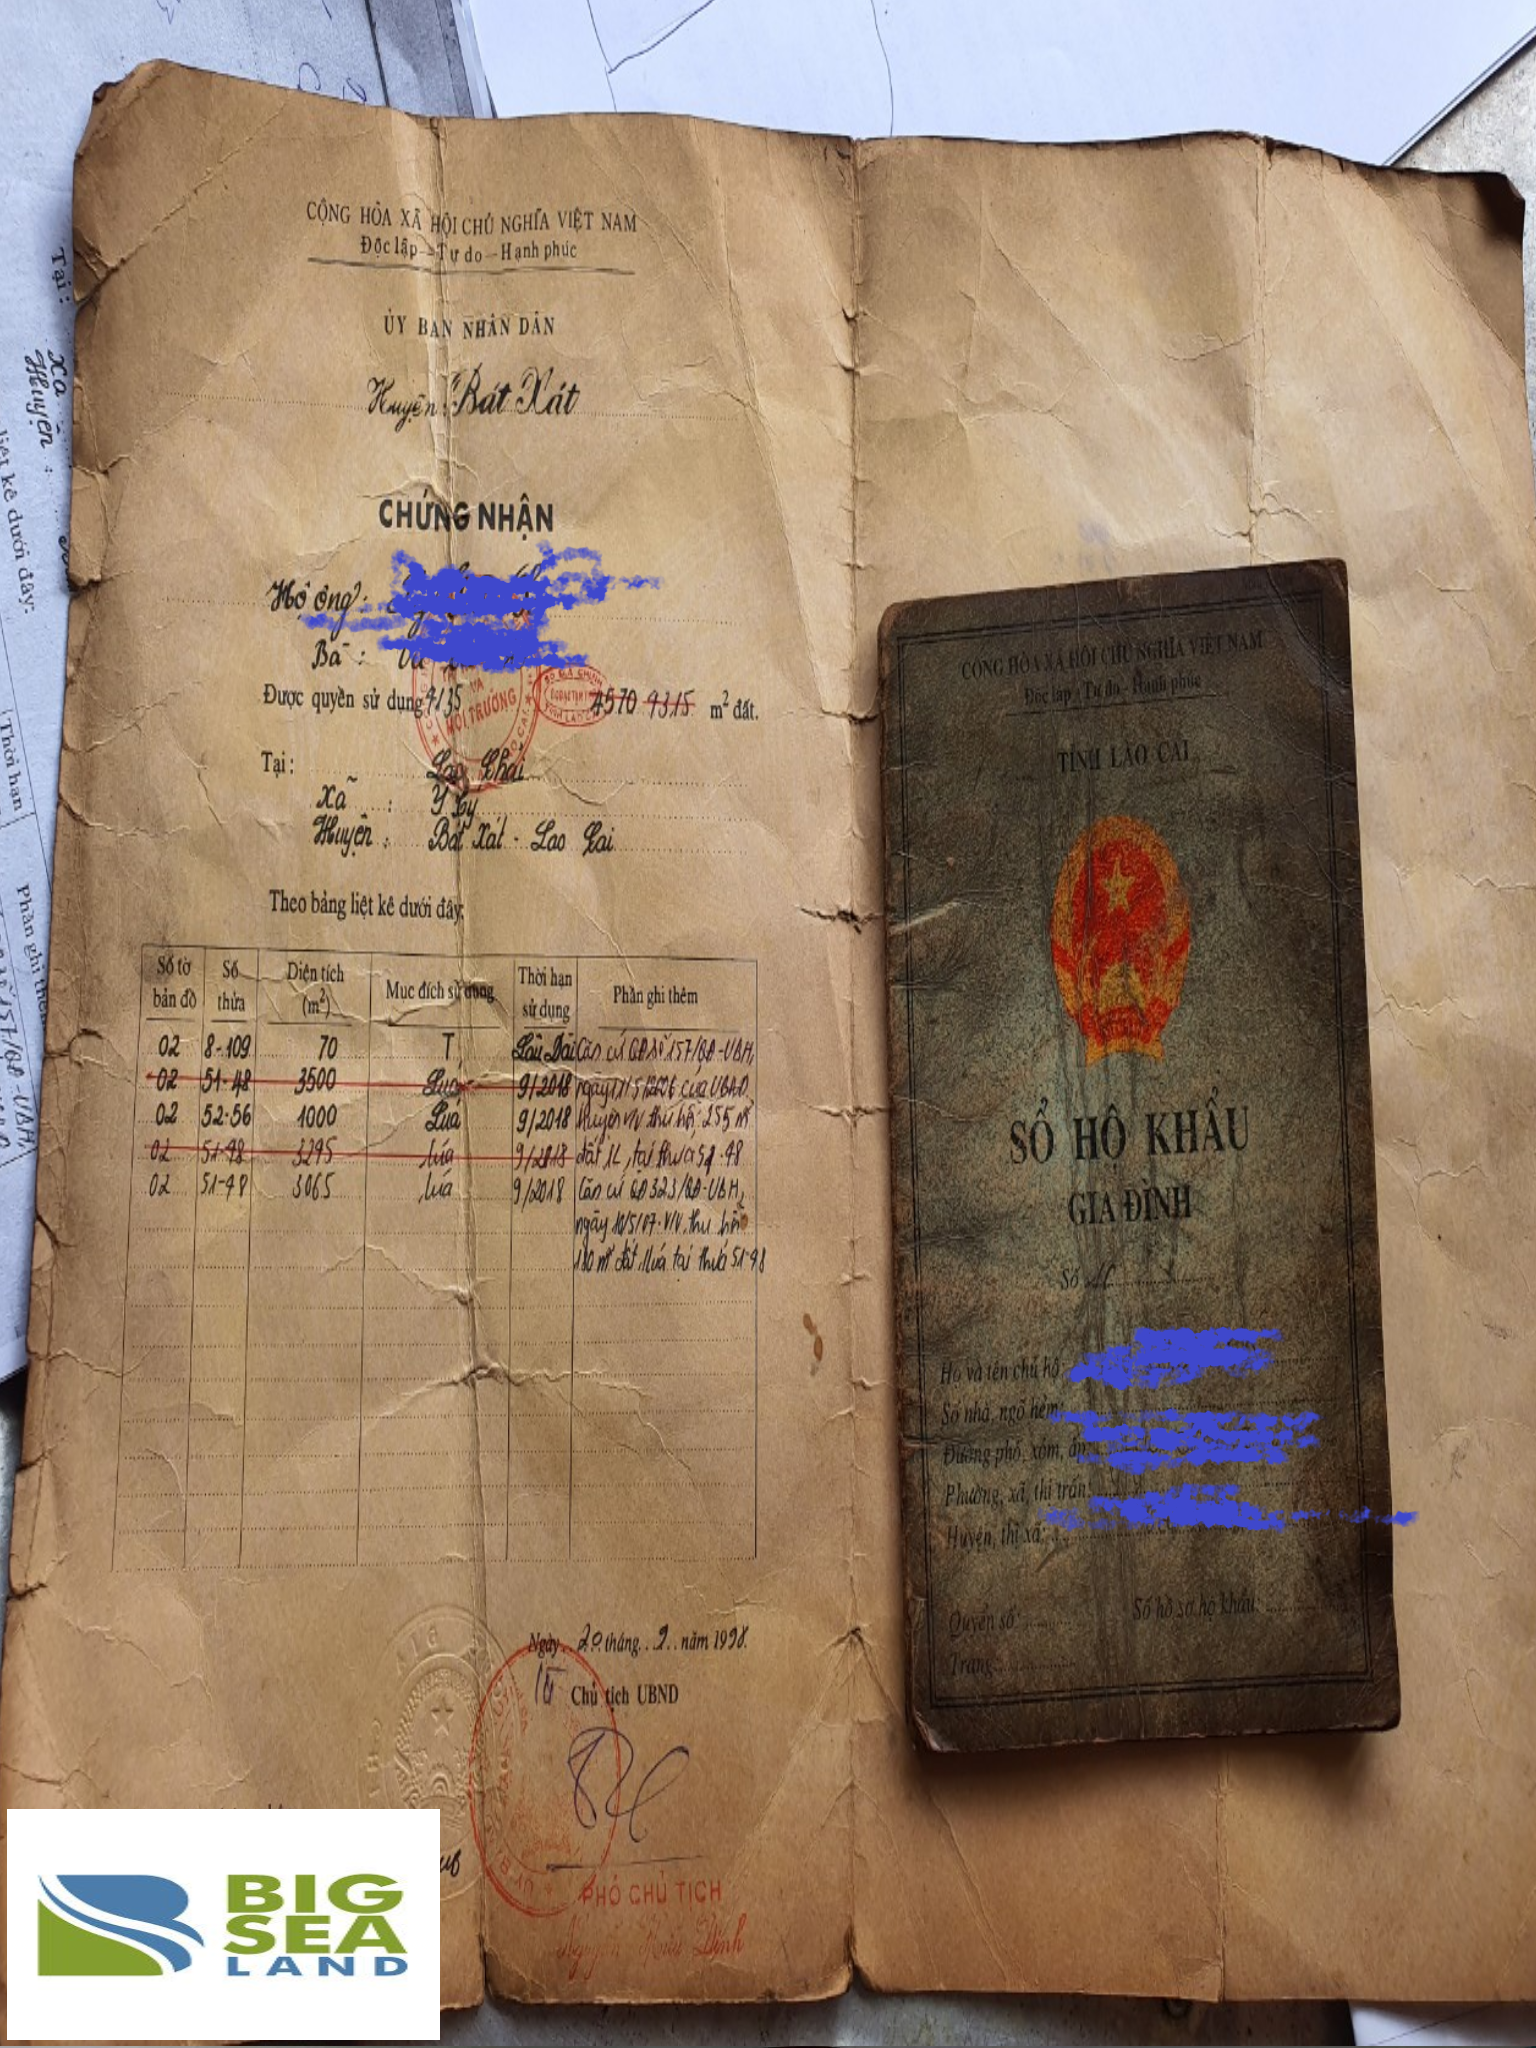 CỘNG HÒA XÃ HỘI CHỦ NGHĨA VIỆT NAM
Độc lập - Tự do - Hạnh phúc
ỦY BAN NHÂN DÂN
Huyện: Bát Xát
CHỨNG NHẬN
Hộ ông:
Bà:
Được quyền sử dụng 4135 4570 4315 m² đất.
Tại: Lao Chải
Xã: Y Tý
Huyện: Bát Xát - Lao Cai
Theo bảng liệt kê dưới đây:
Số tờ bản đồ Số thửa Diện tích (m²) Mục đích sử dụng Thời hạn sử dụng Phần ghi thêm
02 8-109 70 T Lâu Dài Căn cứ QĐ số 157/QĐ-UBH,
02 51-48 3500 Lúa 9/2018 ngày của UBND
02 52-56 1000 Lúa 9/2018 huyện V/V thu hồi 255 m²
02 51-48 3245 Lúa 9/2018 đất 1L, tại thửa 51-48
02 51-48 3065 Lúa 9/2018 Căn cứ QĐ 323/QĐ-UBH,
ngày 10/5/07 V/V thu hồi
180 m² đất Lúa tại thửa 51-48
Ngày 20 tháng 9 năm 1998
Chủ tịch UBND
PHÓ CHỦ TỊCH
Nguyễn Hữu
MÔI TRƯỜNG
CỘNG HÒA XÃ HỘI CHỦ NGHĨA VIỆT NAM
Độc lập - Tự do - Hạnh phúc
TỈNH LÀO CAI
SỔ HỘ KHẨU
GIA ĐÌNH
Số
Họ và tên chủ hộ
Số nhà, ngõ hẻm:
Đường phố, xóm, ấp:
Phường, xã, thị trấn:
Huyện, thị xã:
Quyển số: Số hồ sơ hộ khẩu:
Trang:
Tại:
Xã
Huyện :
liệt kê dưới đây:
Thời hạn
Phần ghi thêm
BIG
SEA
LAND